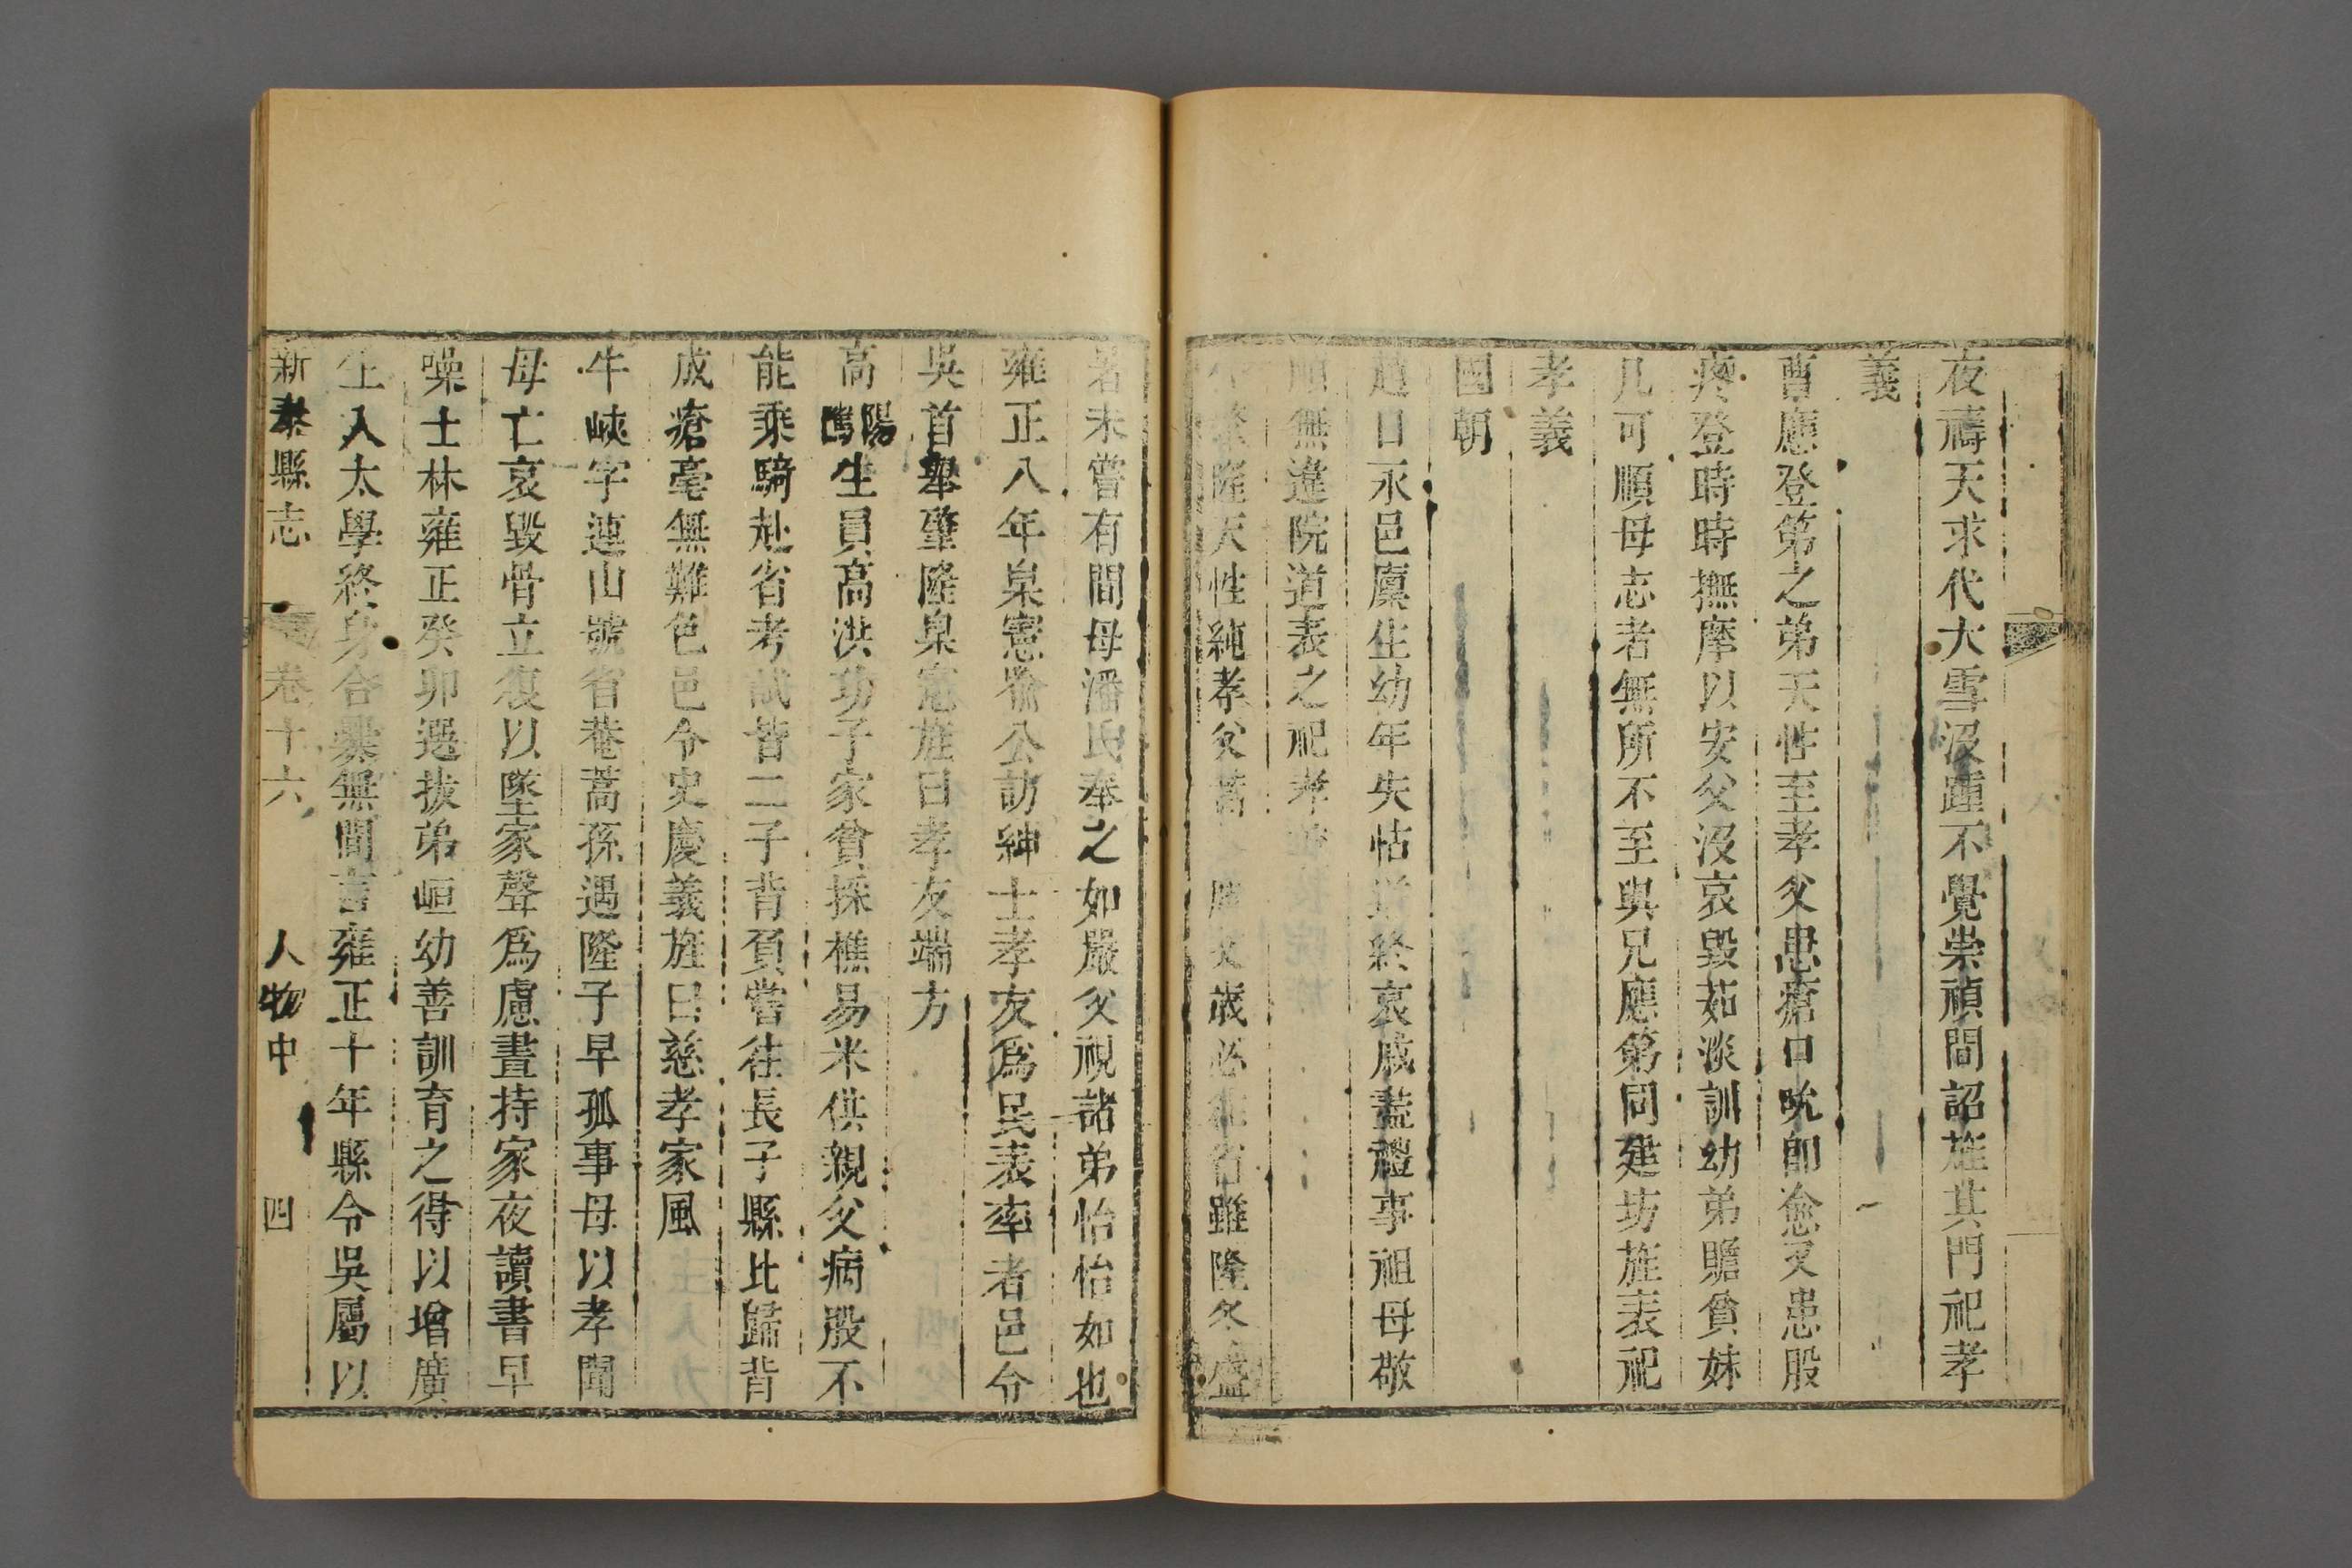 夜禱天求代大雪沒踵不覺崇禎間詔旌其門祀孝
義
曹應登第之弟天性至孝父患瘡口吮卽愈又患股
疼登時時撫摩以安父沒哀毀茹淡訓幼弟贍貧妹
凡可順母志者無所不至與兄應第同建坊旌表祀
孝義
國朝
趙日永邑廩生幼年失怙送終哀戚盡禮事祖母敬
順無違院道表之祀孝
隆天性純孝父 歲必 省雖隆冬盛
暑未嘗有間母潘氏奉之如嚴父視諸弟怡怡如也
雍正八年臬憲 公訪紳士孝友爲民表率者邑令
吳首舉肇隆臬憲旌曰孝友端方
高 陽生員高洪功子家貧採樵易米供親父病股不
能乘騎赴省考試皆二子背負嘗往長子縣比歸背
成瘡毫無難色邑令史慶義旌曰慈孝家風
牛峽字蓮山號省菴蒿孫遇隆子早孤事母以孝聞
母亡哀毀骨立復以墜家聲爲慮晝持家夜讀書早
噪士林雍正癸卯選拔弟峘幼善訓育之得以增廣
生入太學終身合爨無間言雍正十年縣令吳屬以
新泰縣志 卷十六 人物中 四